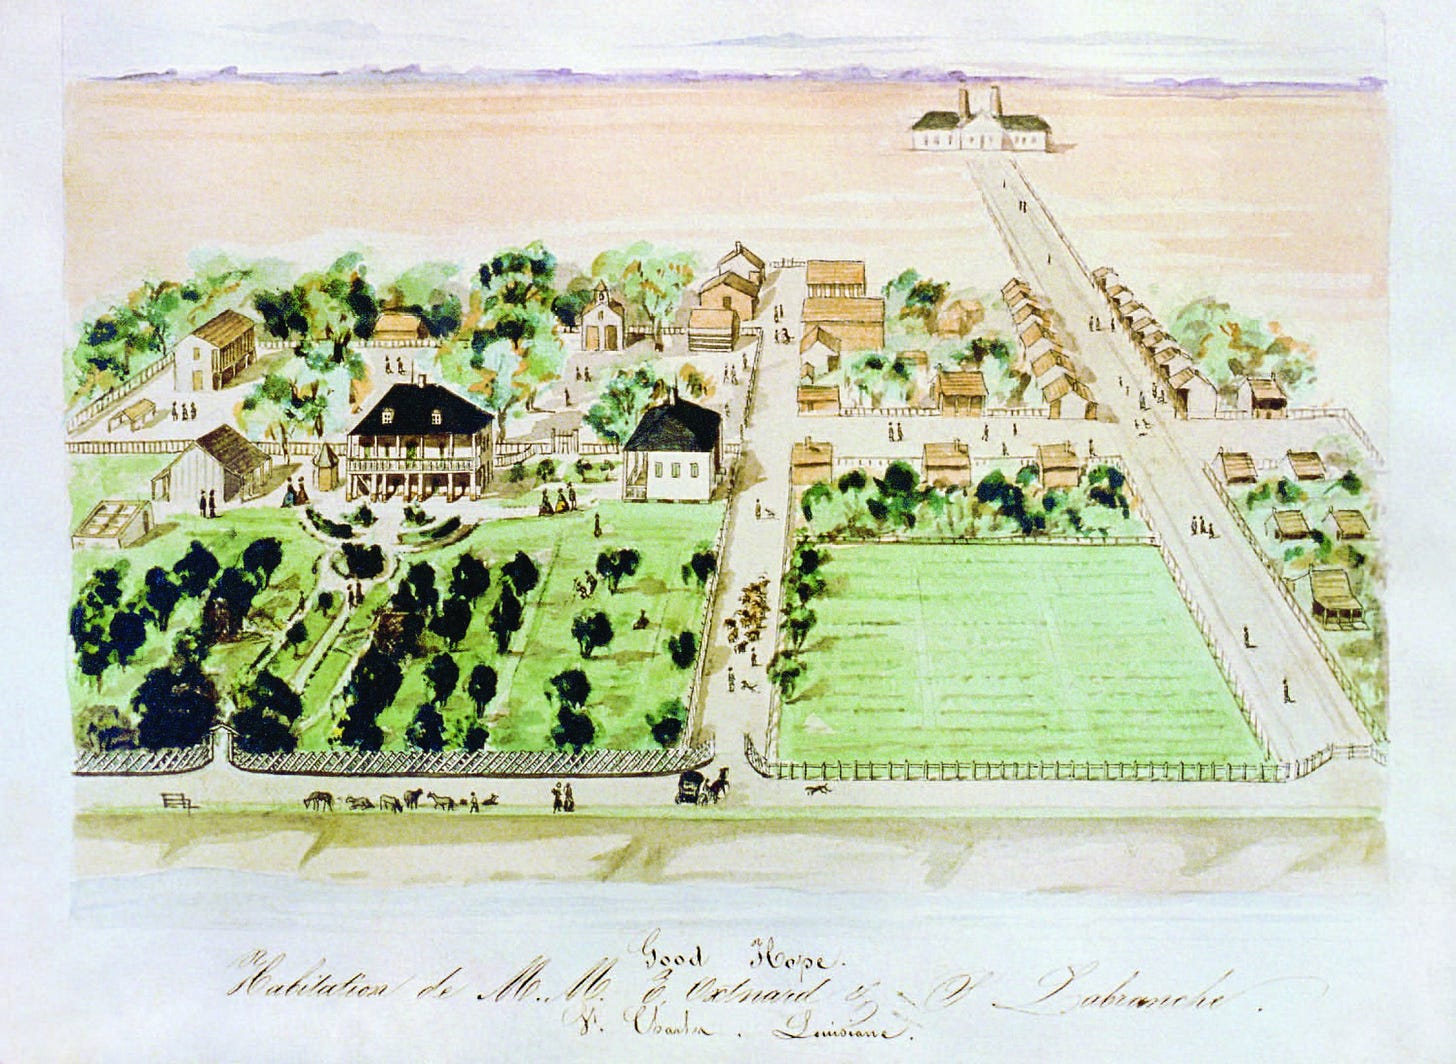 Good Hope.
Habitation de M.M. E. Oxnard & S Labranche.
St. Charles. Louisiane.